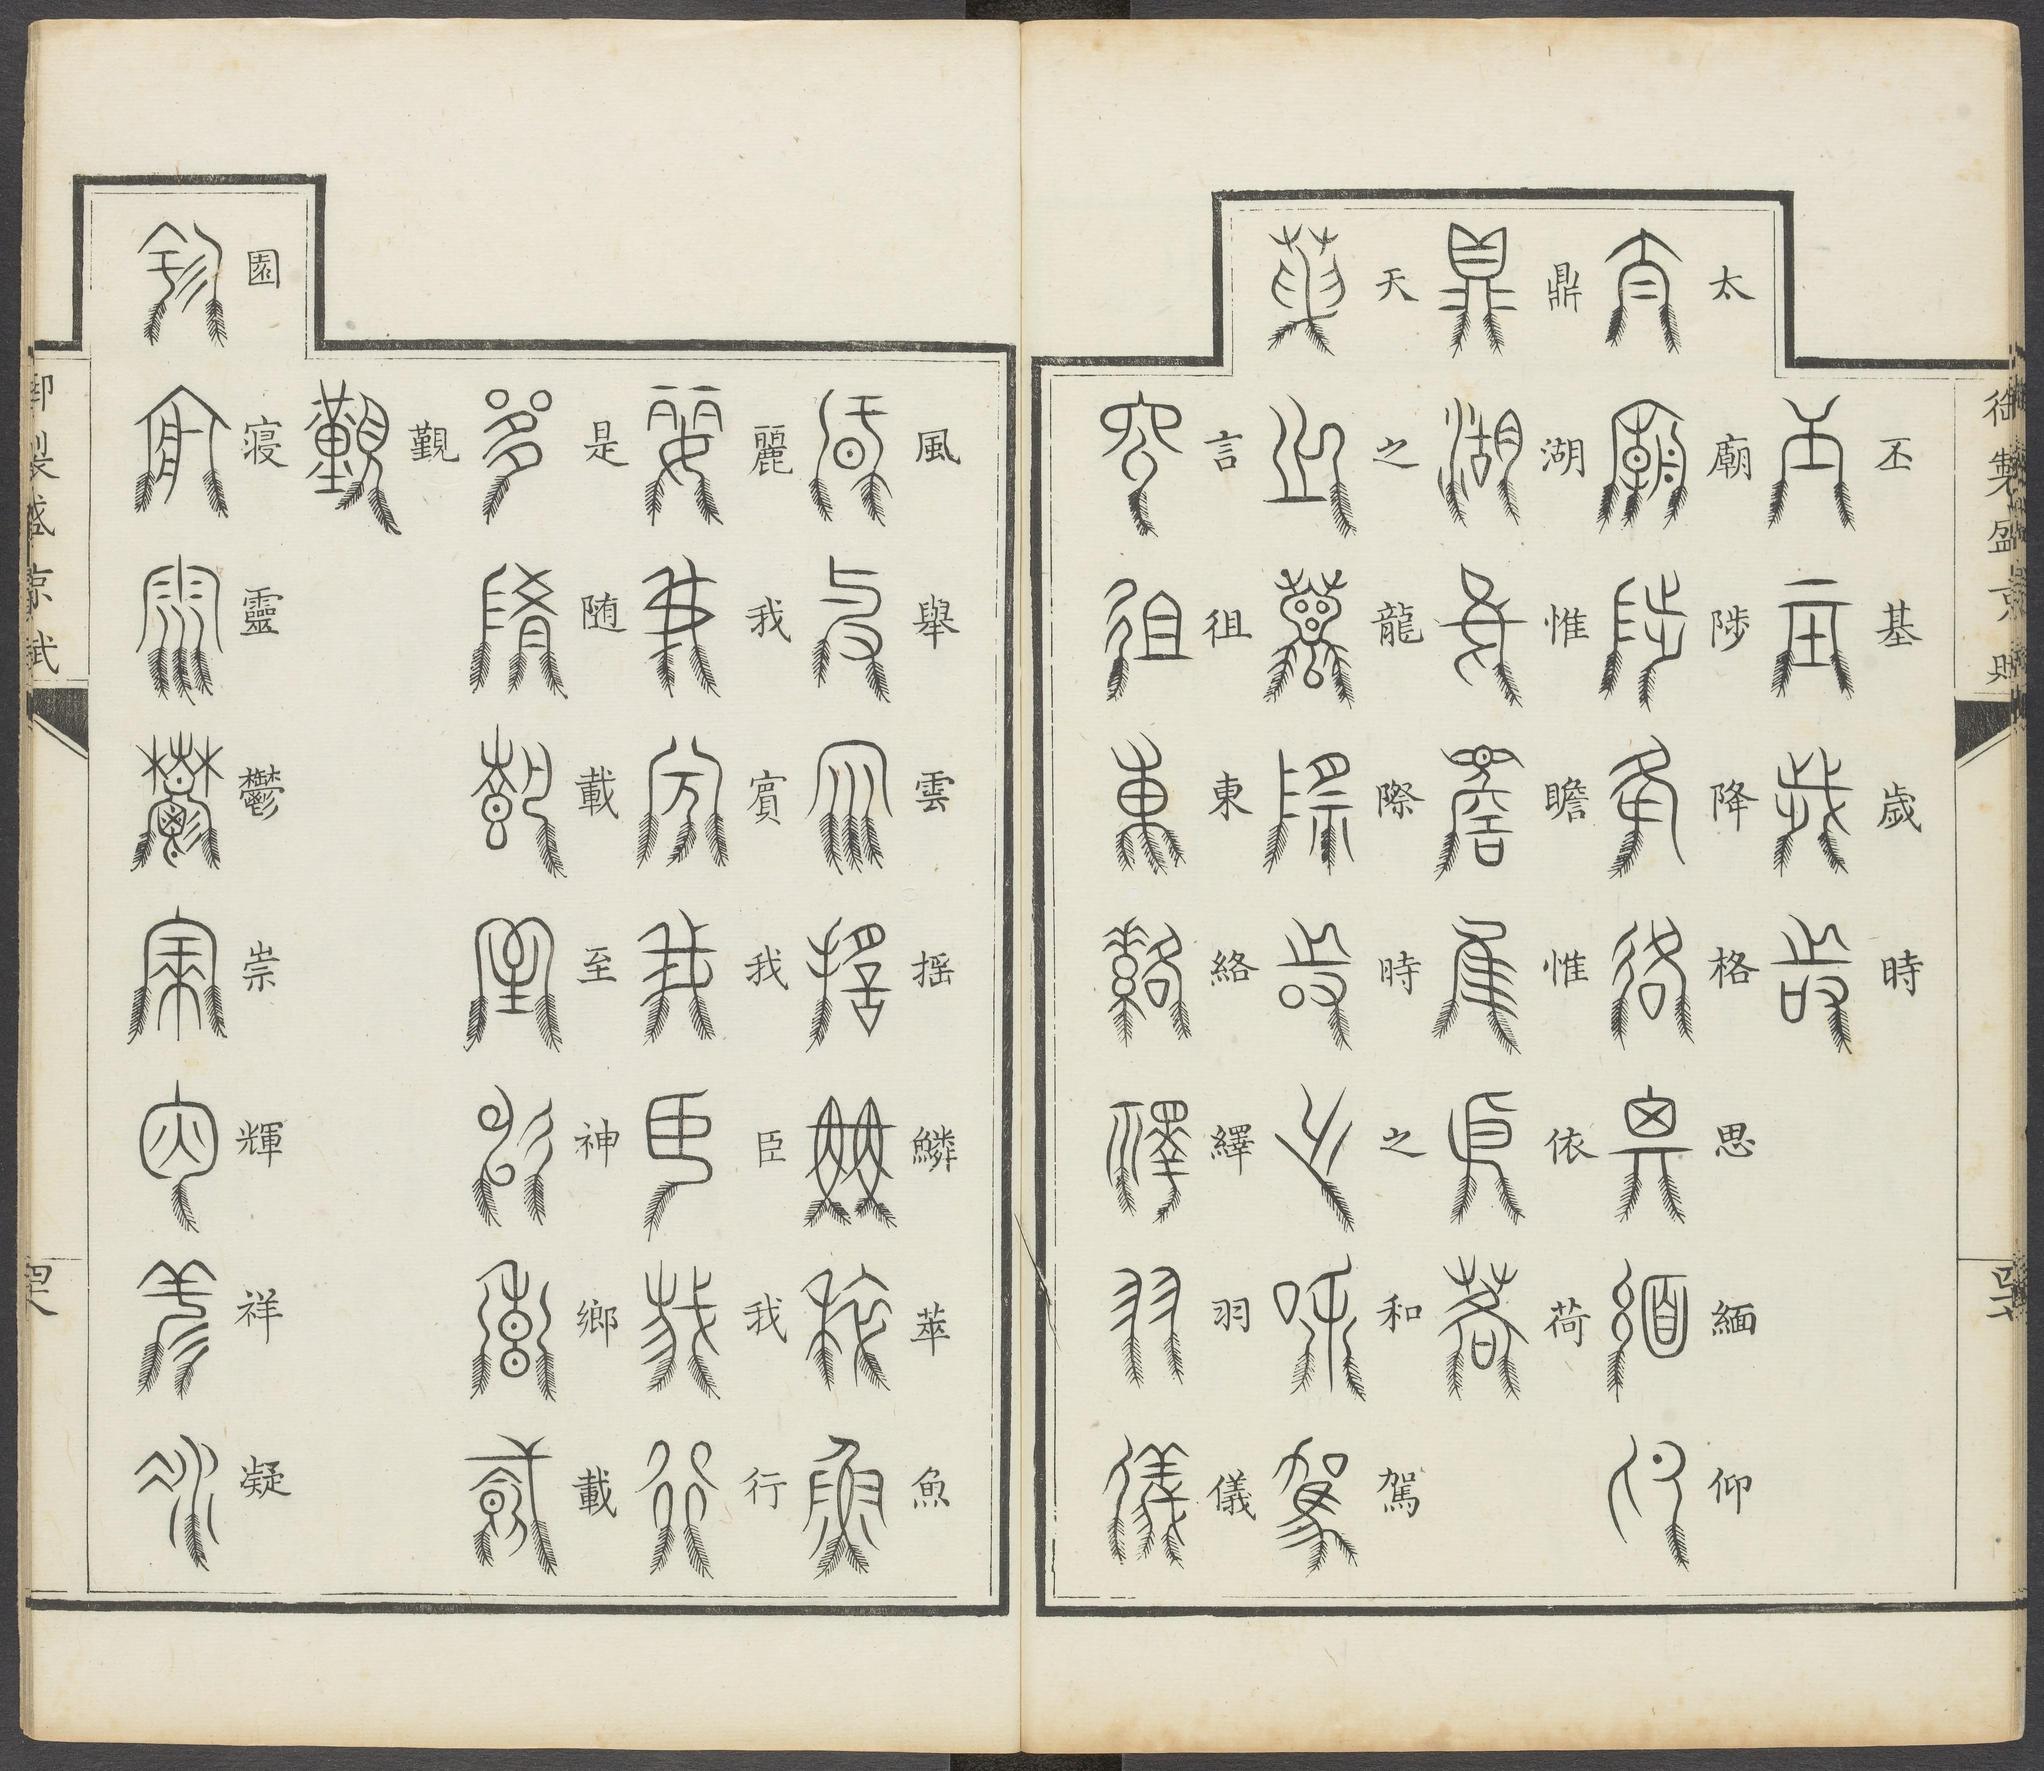 丕基歲時
太廟陟降格思緬仰
鼎湖惟瞻惟依荷
天之龍際時之和駕
言徂東絡繹羽儀
風舉雲摇鱗萃魚
麗我賓我臣我行
是随載至神鄉載
覲
園寝靈鬱崇輝祥凝
御製盛京賦
御製盛京賦